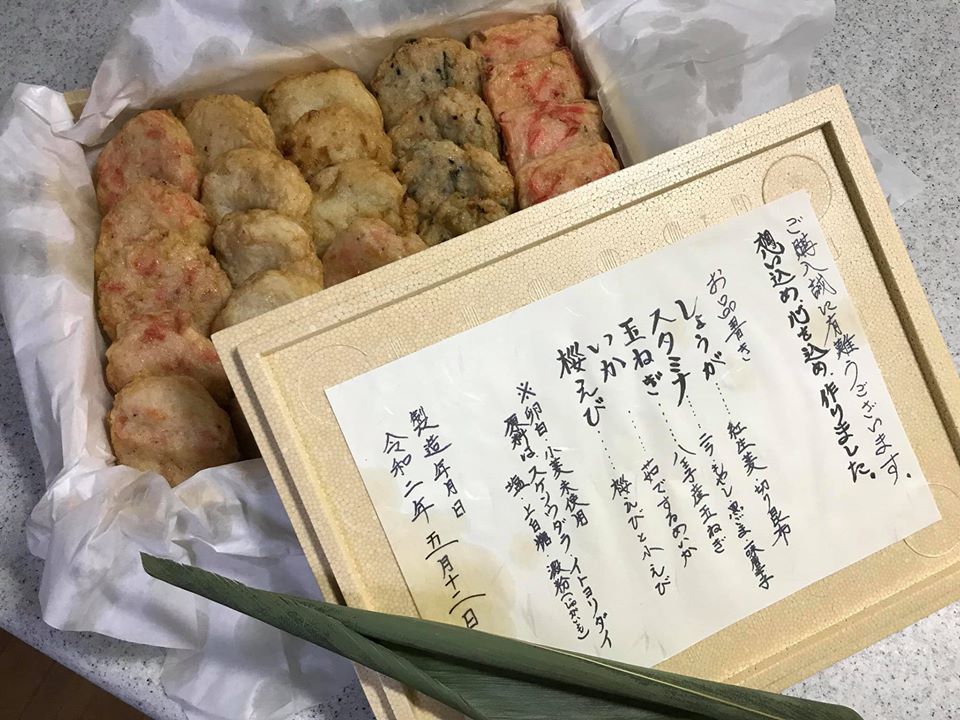 ご購入誠に有難うございます。
想い込め、心を込め、作りました。
お品書き
しょうが……紅生姜 切り昆布
スタミナ……ニラ もやし 黒ごま 唐辛子
玉ねぎ……八千産玉ねぎ
いか……茹でするめいか
桜えび……桜えびと小えび
※卵白 小麦未使用
原料は、スケソウダラ、イトヨリダイ
塩・上白糖・澱粉(じゃがいも)
製造年月日
令和二年 五月十二日